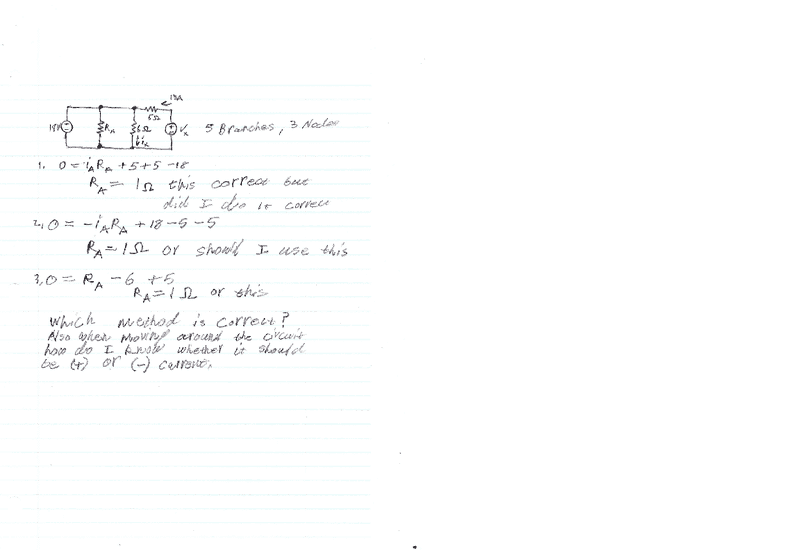 13A
5Ω
18V
R_A
6Ω
V_x
i_x
5 Branches, 3 Nodes
1. 0 = i_A R_A + 5 + 5 - 18
R_A = 1Ω this correct but
did I do it correct
2. 0 = -i_A R_A + 18 - 5 - 5
R_A = 1Ω or should I use this
3. 0 = R_A - 6 + 5
R_A = 1Ω or this
Which method is correct?
Also when moving around the circuit
how do I know whether it should
be (+) or (-) current.